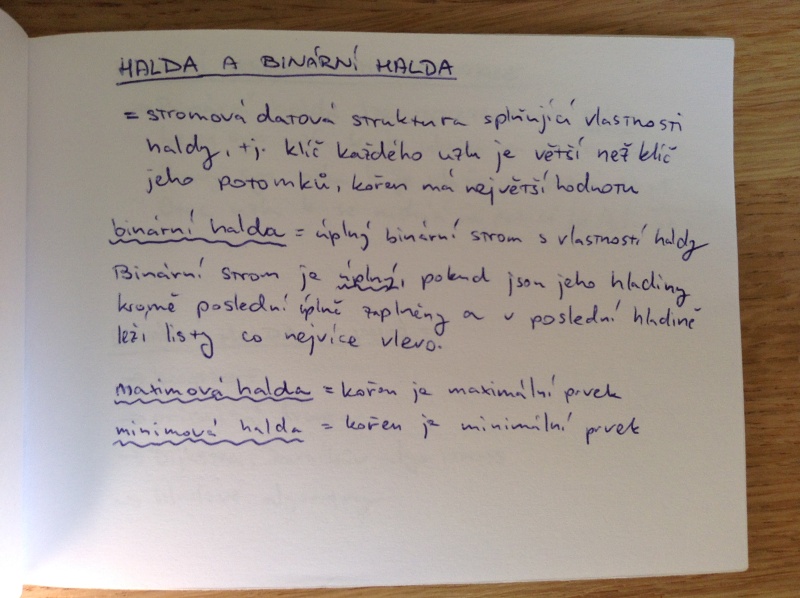 HALDA A BINÁRNÍ HALDA
= stromová datová struktura splňující vlastnosti
haldy, tj. klíč každého uzlu je větší než klíč
jeho potomků, kořen má největší hodnotu
binární halda = úplný binární strom s vlastností haldy
Binární strom je úplný, pokud jsou jeho hladiny
kromě poslední úplně zaplněny a v poslední hladině
leží listy co nejvíce vlevo.
maximová halda = kořen je maximální prvek
minimová halda = kořen je minimální prvek